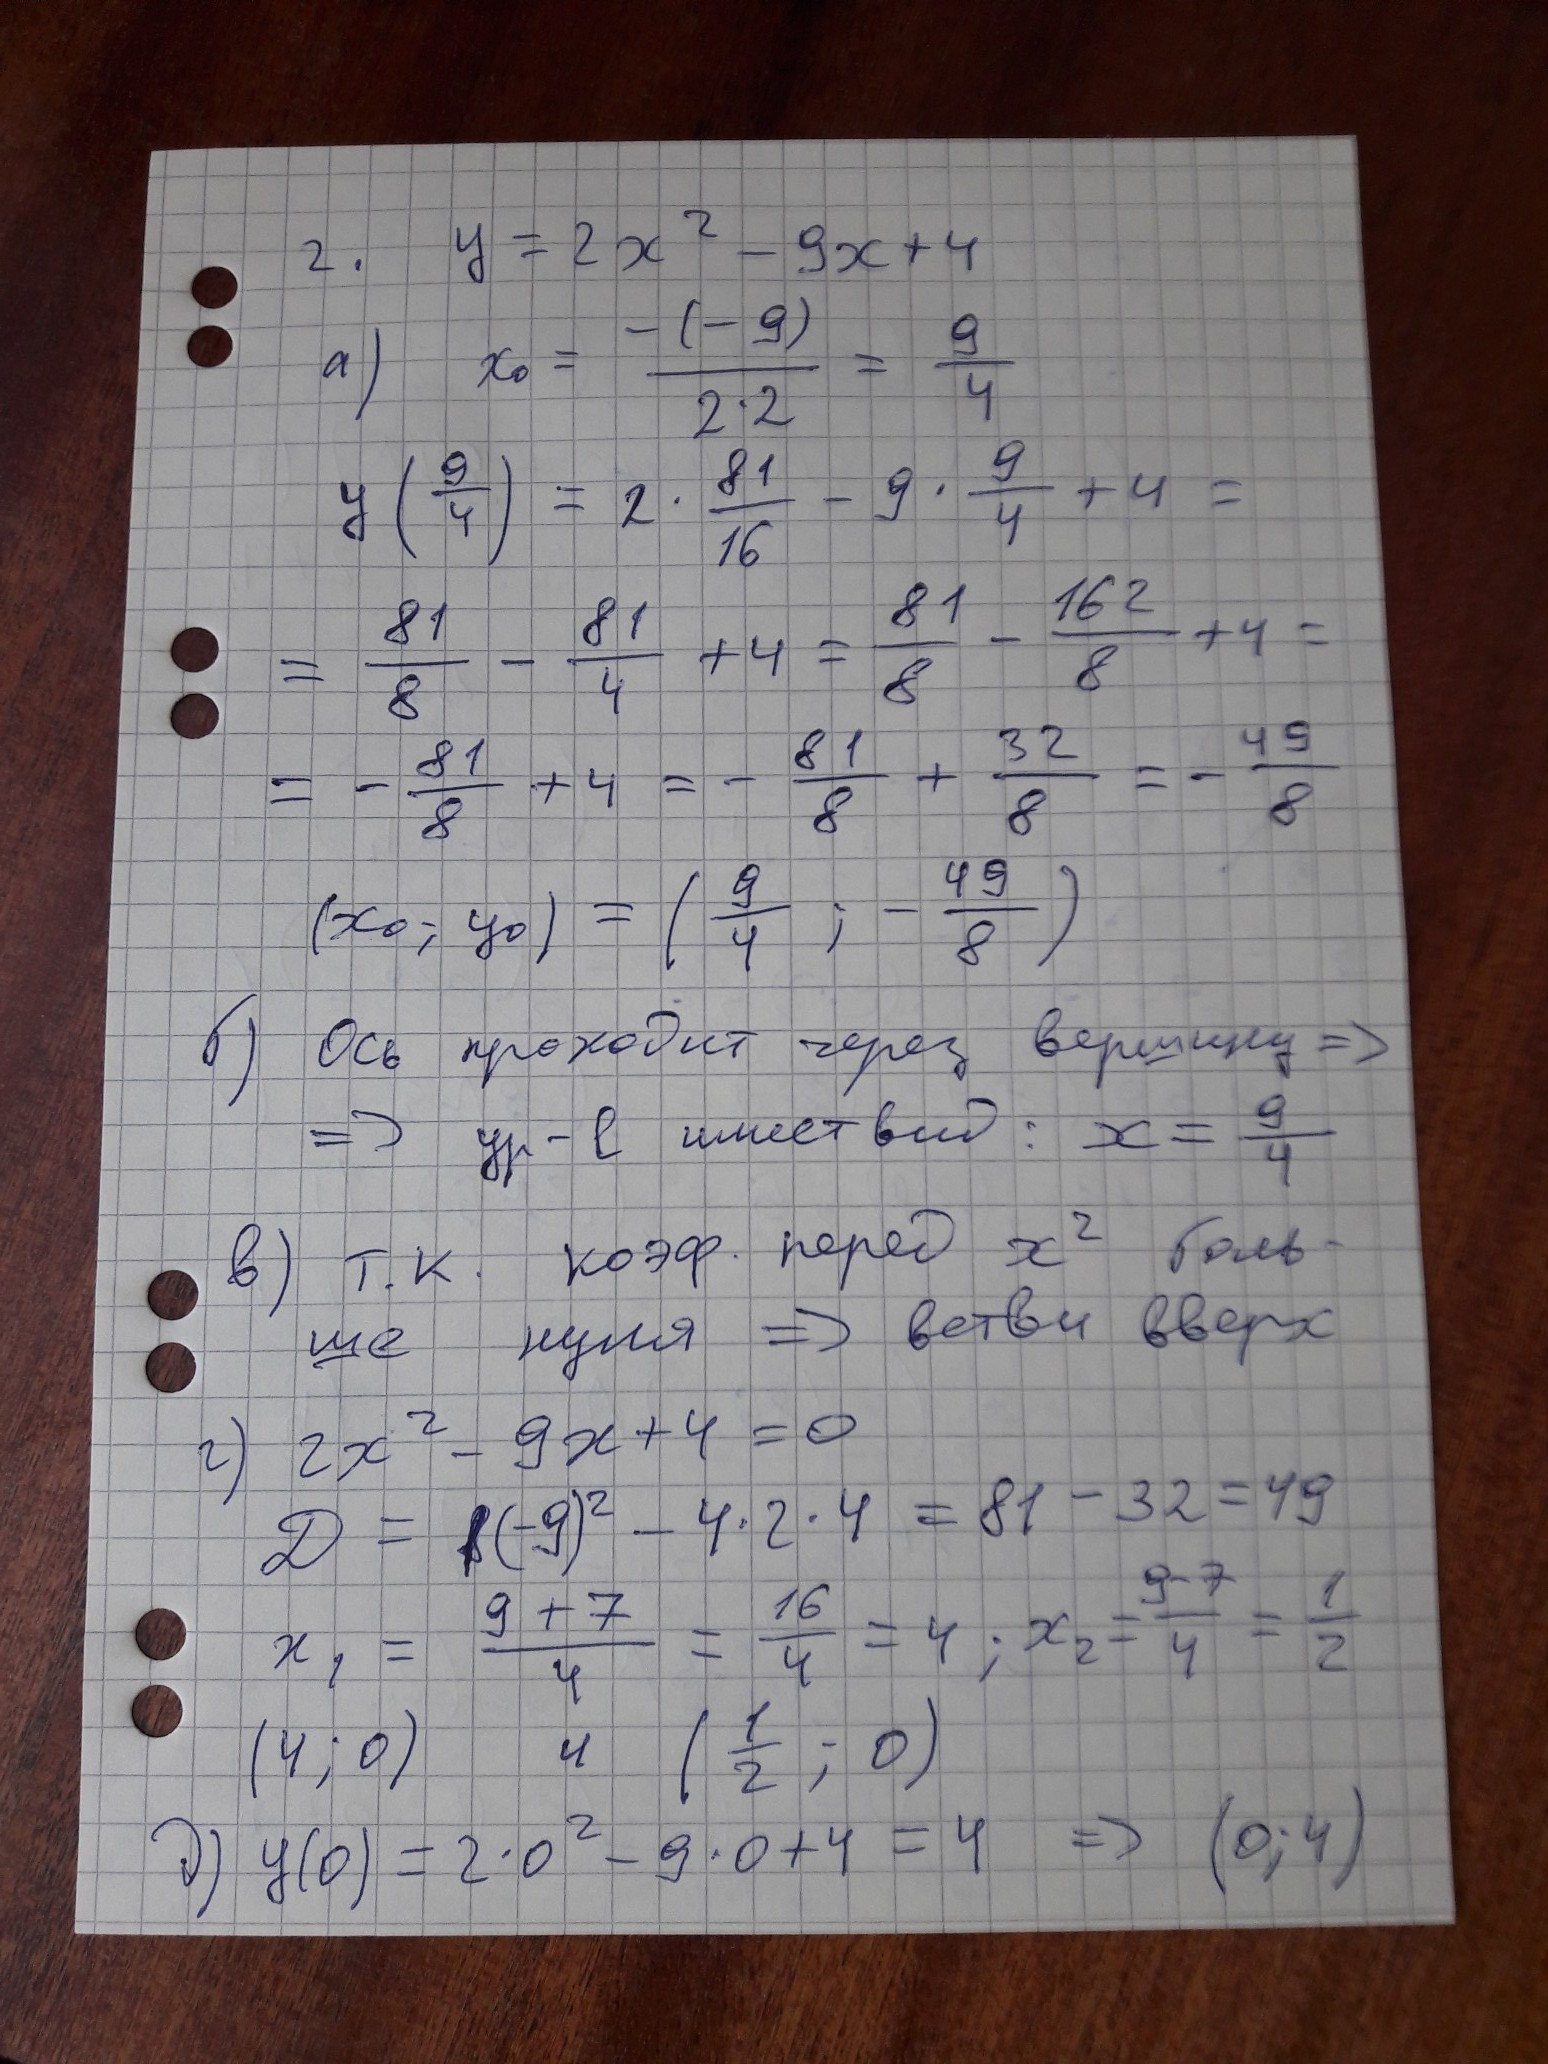 2. y = 2x² - 9x + 4
а) x₀ = -(-9)/2·2 = 9/4
y(9/4) = 2 · 81/16 - 9 · 9/4 + 4 =
= 81/8 - 81/4 + 4 = 81/8 - 162/8 + 4 =
= - 81/8 + 4 = - 81/8 + 32/8 = - 49/8
(x₀; y₀) = (9/4 ; - 49/8)
б) Ось проходит через вершину =>
=> ур-е имеет вид: x = 9/4
в) т.к. коэф. перед x² боль-
ше нуля => ветви вверх
г) 2x² - 9x + 4 = 0
D = (-9)² - 4·2·4 = 81 - 32 = 49
x₁ = 9+7/4 = 16/4 = 4 ; x₂ = 9-7/4 = 1/2
(4; 0) и (1/2 ; 0)
д) y(0) = 2·0² - 9·0 + 4 = 4 => (0; 4)